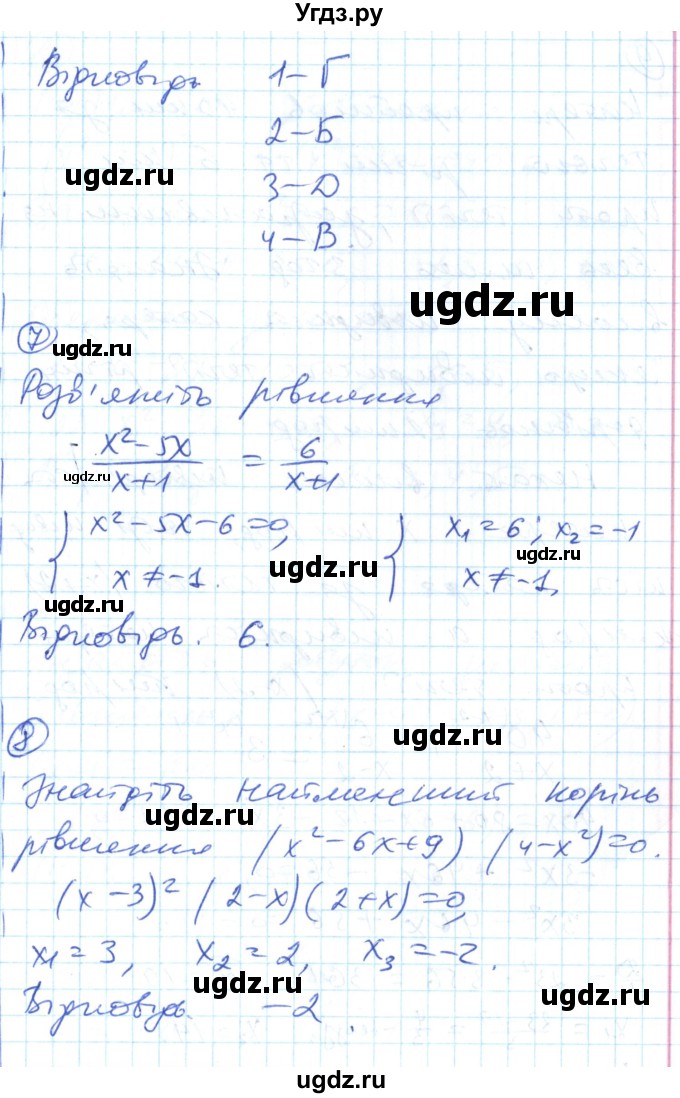 Угдз.ру
Відповідь 1-Г
2-Б
ugdz.ru
3-Д
4-В.
ugdz.ru
7
ugdz.ru
Розв'яжіть рівняння
(x²-5x)/(x+1) = 6/(x+1)
ugdz.ru
{ x²-5x-6=0, { x₁=6; x₂=-1
ugdz.ru
x≠-1. x≠-1,
ugdz.ru
ugdz.ru
Відповідь. 6.
8
ugdz.ru
Знайдіть найменший корінь
ugdz.ru
рівняння (x²-6x+9) (4-x²)=0.
(x-3)² (2-x)(2+x)=0,
x₁=3, x₂=2, x₃=-2.
ugdz.ru
ugdz.ru
Відповідь. -2
ugdz.ru